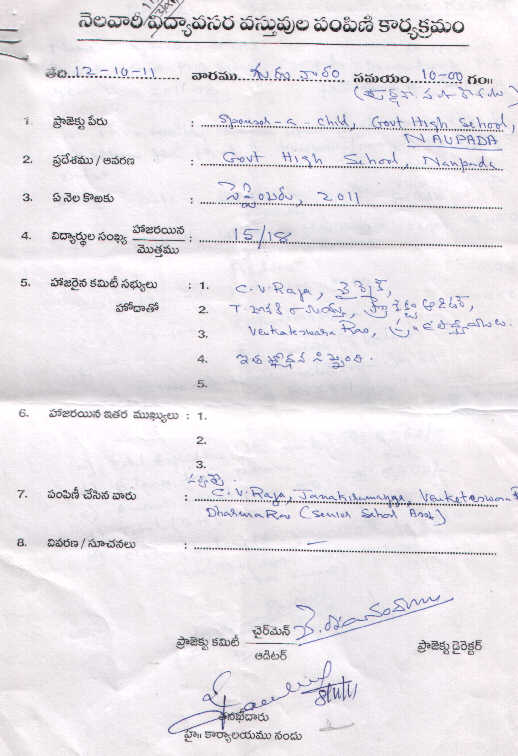 నెలవారీ విద్యావసర వస్తువుల పంపిణి కార్యక్రమం
తేది 12-10-11 వారము గురువారం సమయం 10-00 గం॥
1. ప్రాజెక్టు పేరు : Sponsor-a-child, Govt High School,
NAUPADA
2. ప్రదేశము / ఆవరణ : Govt High School, Naupada
3. ఏ నెల కొఱకు : సెప్టెంబరు, 2011
4. విద్యార్థుల సంఖ్య హాజరయిన / మొత్తము : 15/18
5. హాజరైన కమిటీ సభ్యులు : 1. C.V. Raja,
హోదాతో 2. T.
3. Venkateswara Rao,
4.
5.
6. హాజరయిన ఇతర ముఖ్యులు : 1.
2.
3.
7. పంపిణీ చేసిన వారు : C.V. Raja, Janakiramayya, Venkateswara R
Dharma Rao (Senior School Asst)
8. వివరణ / సూచనలు : —
ప్రాజెక్టు కమిటీ చైర్‌మెన్ / ఆడిటర్ ప్రాజెక్టు డైరెక్టర్
8/11/11
తనఖీదారు
హై॥ కార్యాలయము నందు